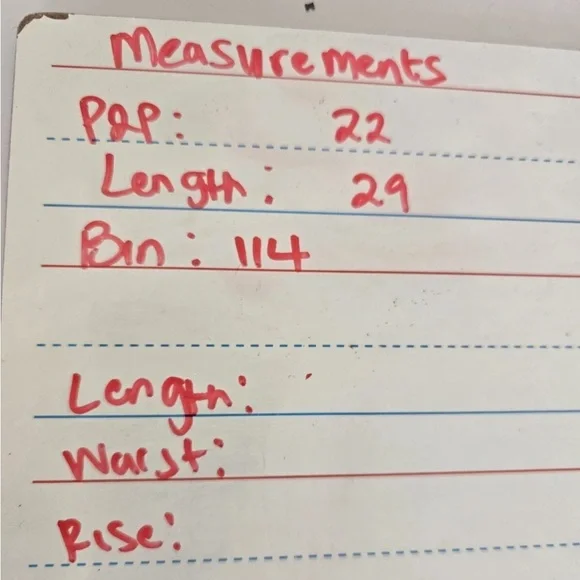 Measurements
P2P: 22
Length: 29
Bin: 114
Length:
Waist:
Rise: